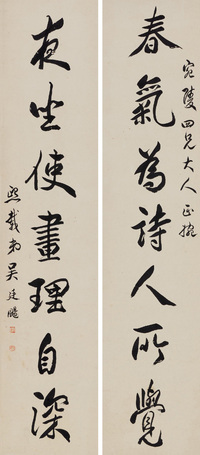 春氣為詩人所覺
宛陵四兄大人正捥
夜坐使畫理自深
熙載弟吳廷颺